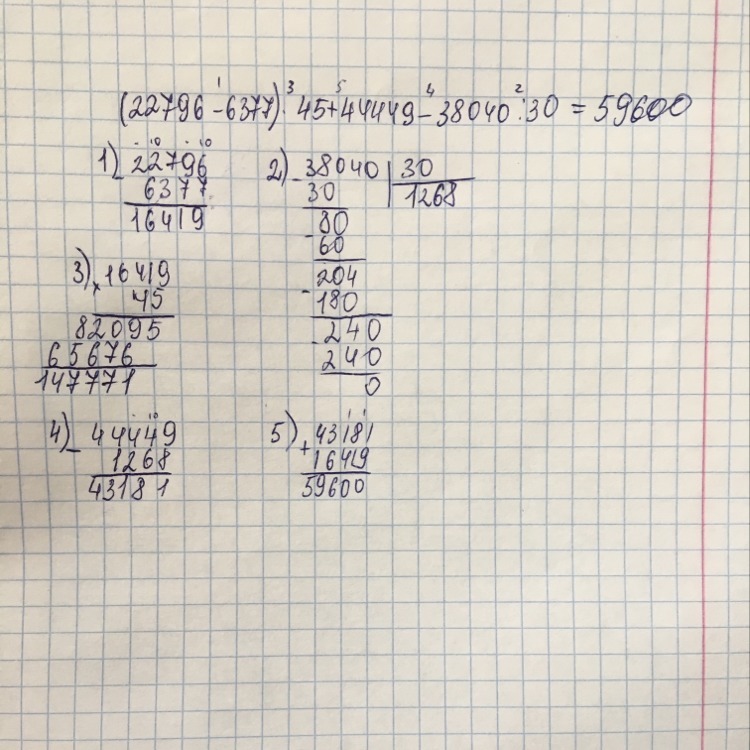 1 3 5 4 2
(22796-6377)·45+44449-38040:30=59600
1) - 22796
6377
16419
2) - 38040 | 30
30 1268
- 80
60
- 204
180
- 240
240
0
3) x 16419
45
82095
65676
147771
4) - 44449
1268
43181
5) + 43181
16419
59600